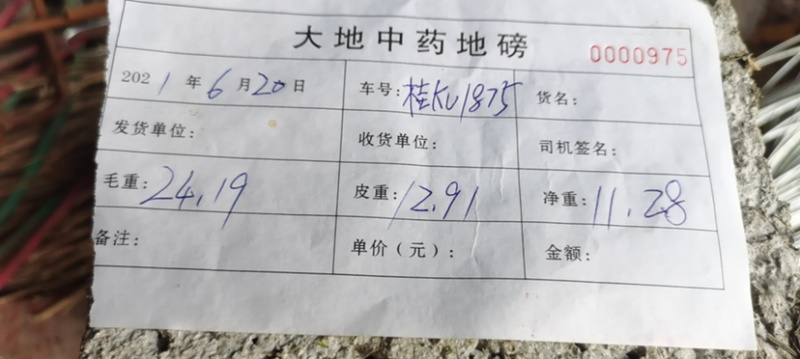 大地中药地磅 0000975
2021年6月20日 车号:桂KU1875 货名:
发货单位: 收货单位: 司机签名:
毛重:24.19 皮重:12.91 净重:11.28
备注: 单价(元): 金额: